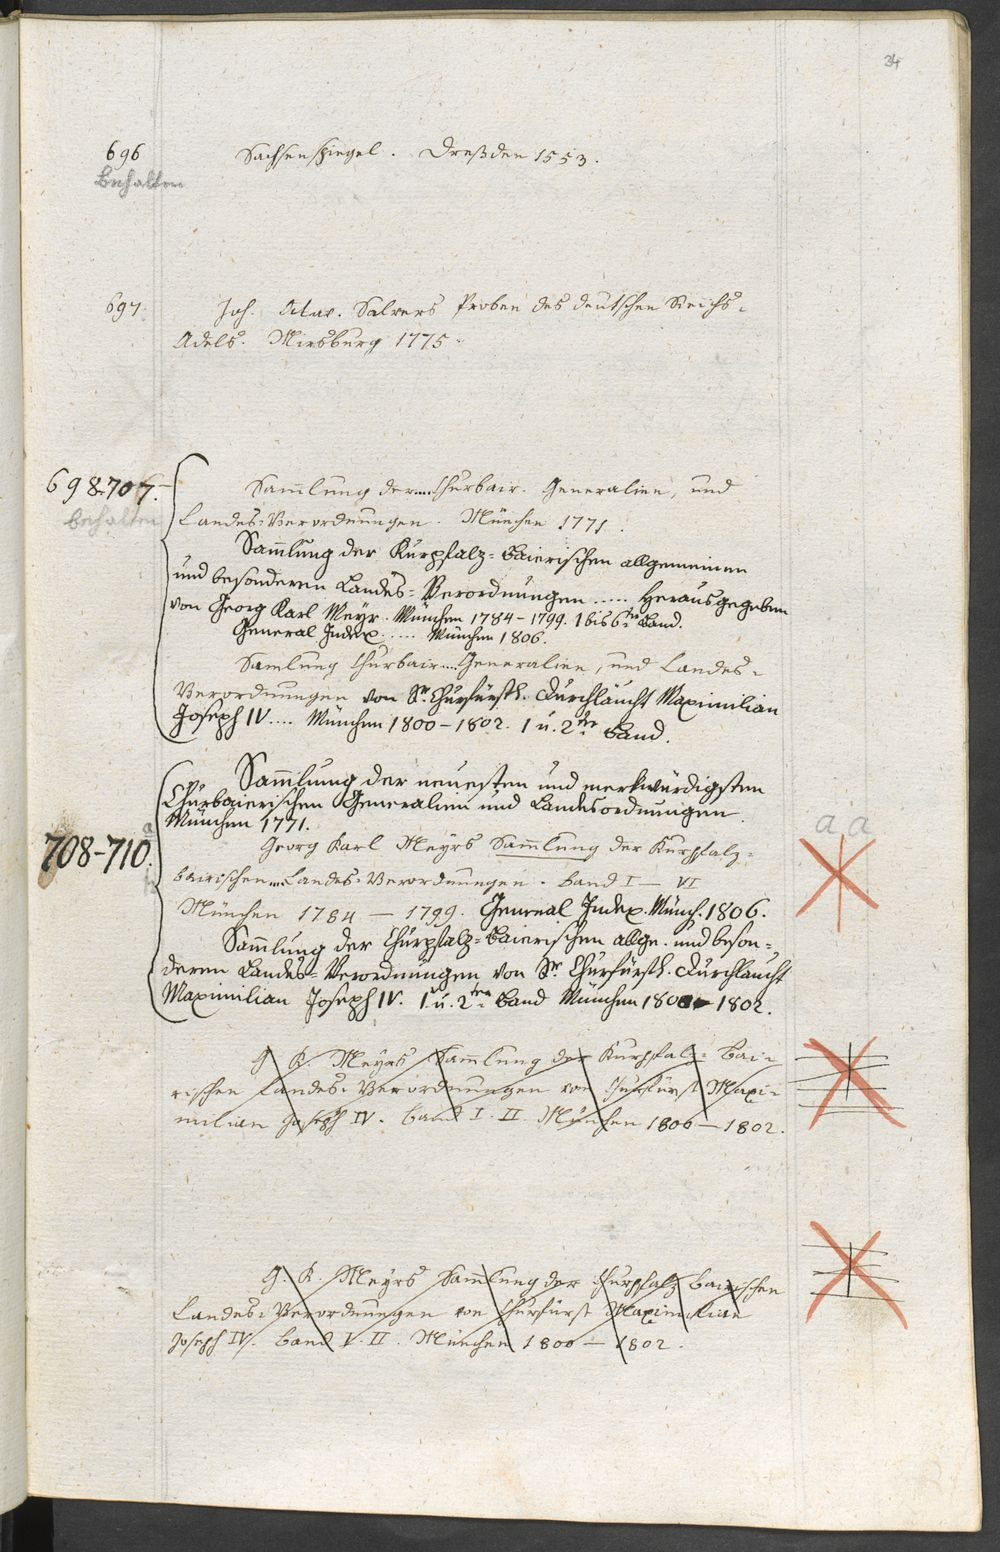 34
696 Sachsenspiegel. Dreßden 1553.
Behalten
697. Joh. Octav. Salvers Proben des deutschen Reichs-
Adels. Wirsburg 1775.
698-707. Sam̄lung der.... Churbair. Generalien, und
Behalten Landes-Verordnungen. München 1771.
Sam̄lung der Kurpfalz-Baierischen allgemeinen
und besonderen Landes-Verordnungen ..... Herausgegeben
von Georg Karl Meyr. München 1784-1799. 1 bis 6ter Band.
General Index ..... München 1806.
Samlung Churbair.... Generalien, und Landes-
Verordnungen von Sr. Churfürstl. Durchlaucht Maximilian
Joseph IV.... München 1800-1802. 1 u. 2ter Band.
Sam̄lung der neuesten und merkwürdigsten
Churbaierischen Generalien und Landesordnungen.
München 1771.
a a a
708-710. Georg Karl Meyrs Sam̄lung der Kurpfalz-
bairischen.... Landes-Verordnungen. Band I — VI
München 1784 — 1799. General Index. Münch. 1806.
Sam̄lung der Churpfalz-Baierischen allge. und beson-
deren Landes-Verordnungen von Sr. Churfürstl. Durchlaucht
Maximilian Joseph IV. 1 u. 2ter Band München 1800-1802.
G. K. Meyrs Sam̄lung der Kurpfalz-Bai-
rischen Landes-Verordnungen von Churfürst Maxi-
milian Joseph IV. Band I. II. München 1800 — 1802.
G. K. Meyrs Sam̄lung der Churpfalz Bairischen
Landes-Verordnungen von Churfürst Maximilian
Joseph IV. Band I. II. München 1800 — 1802.